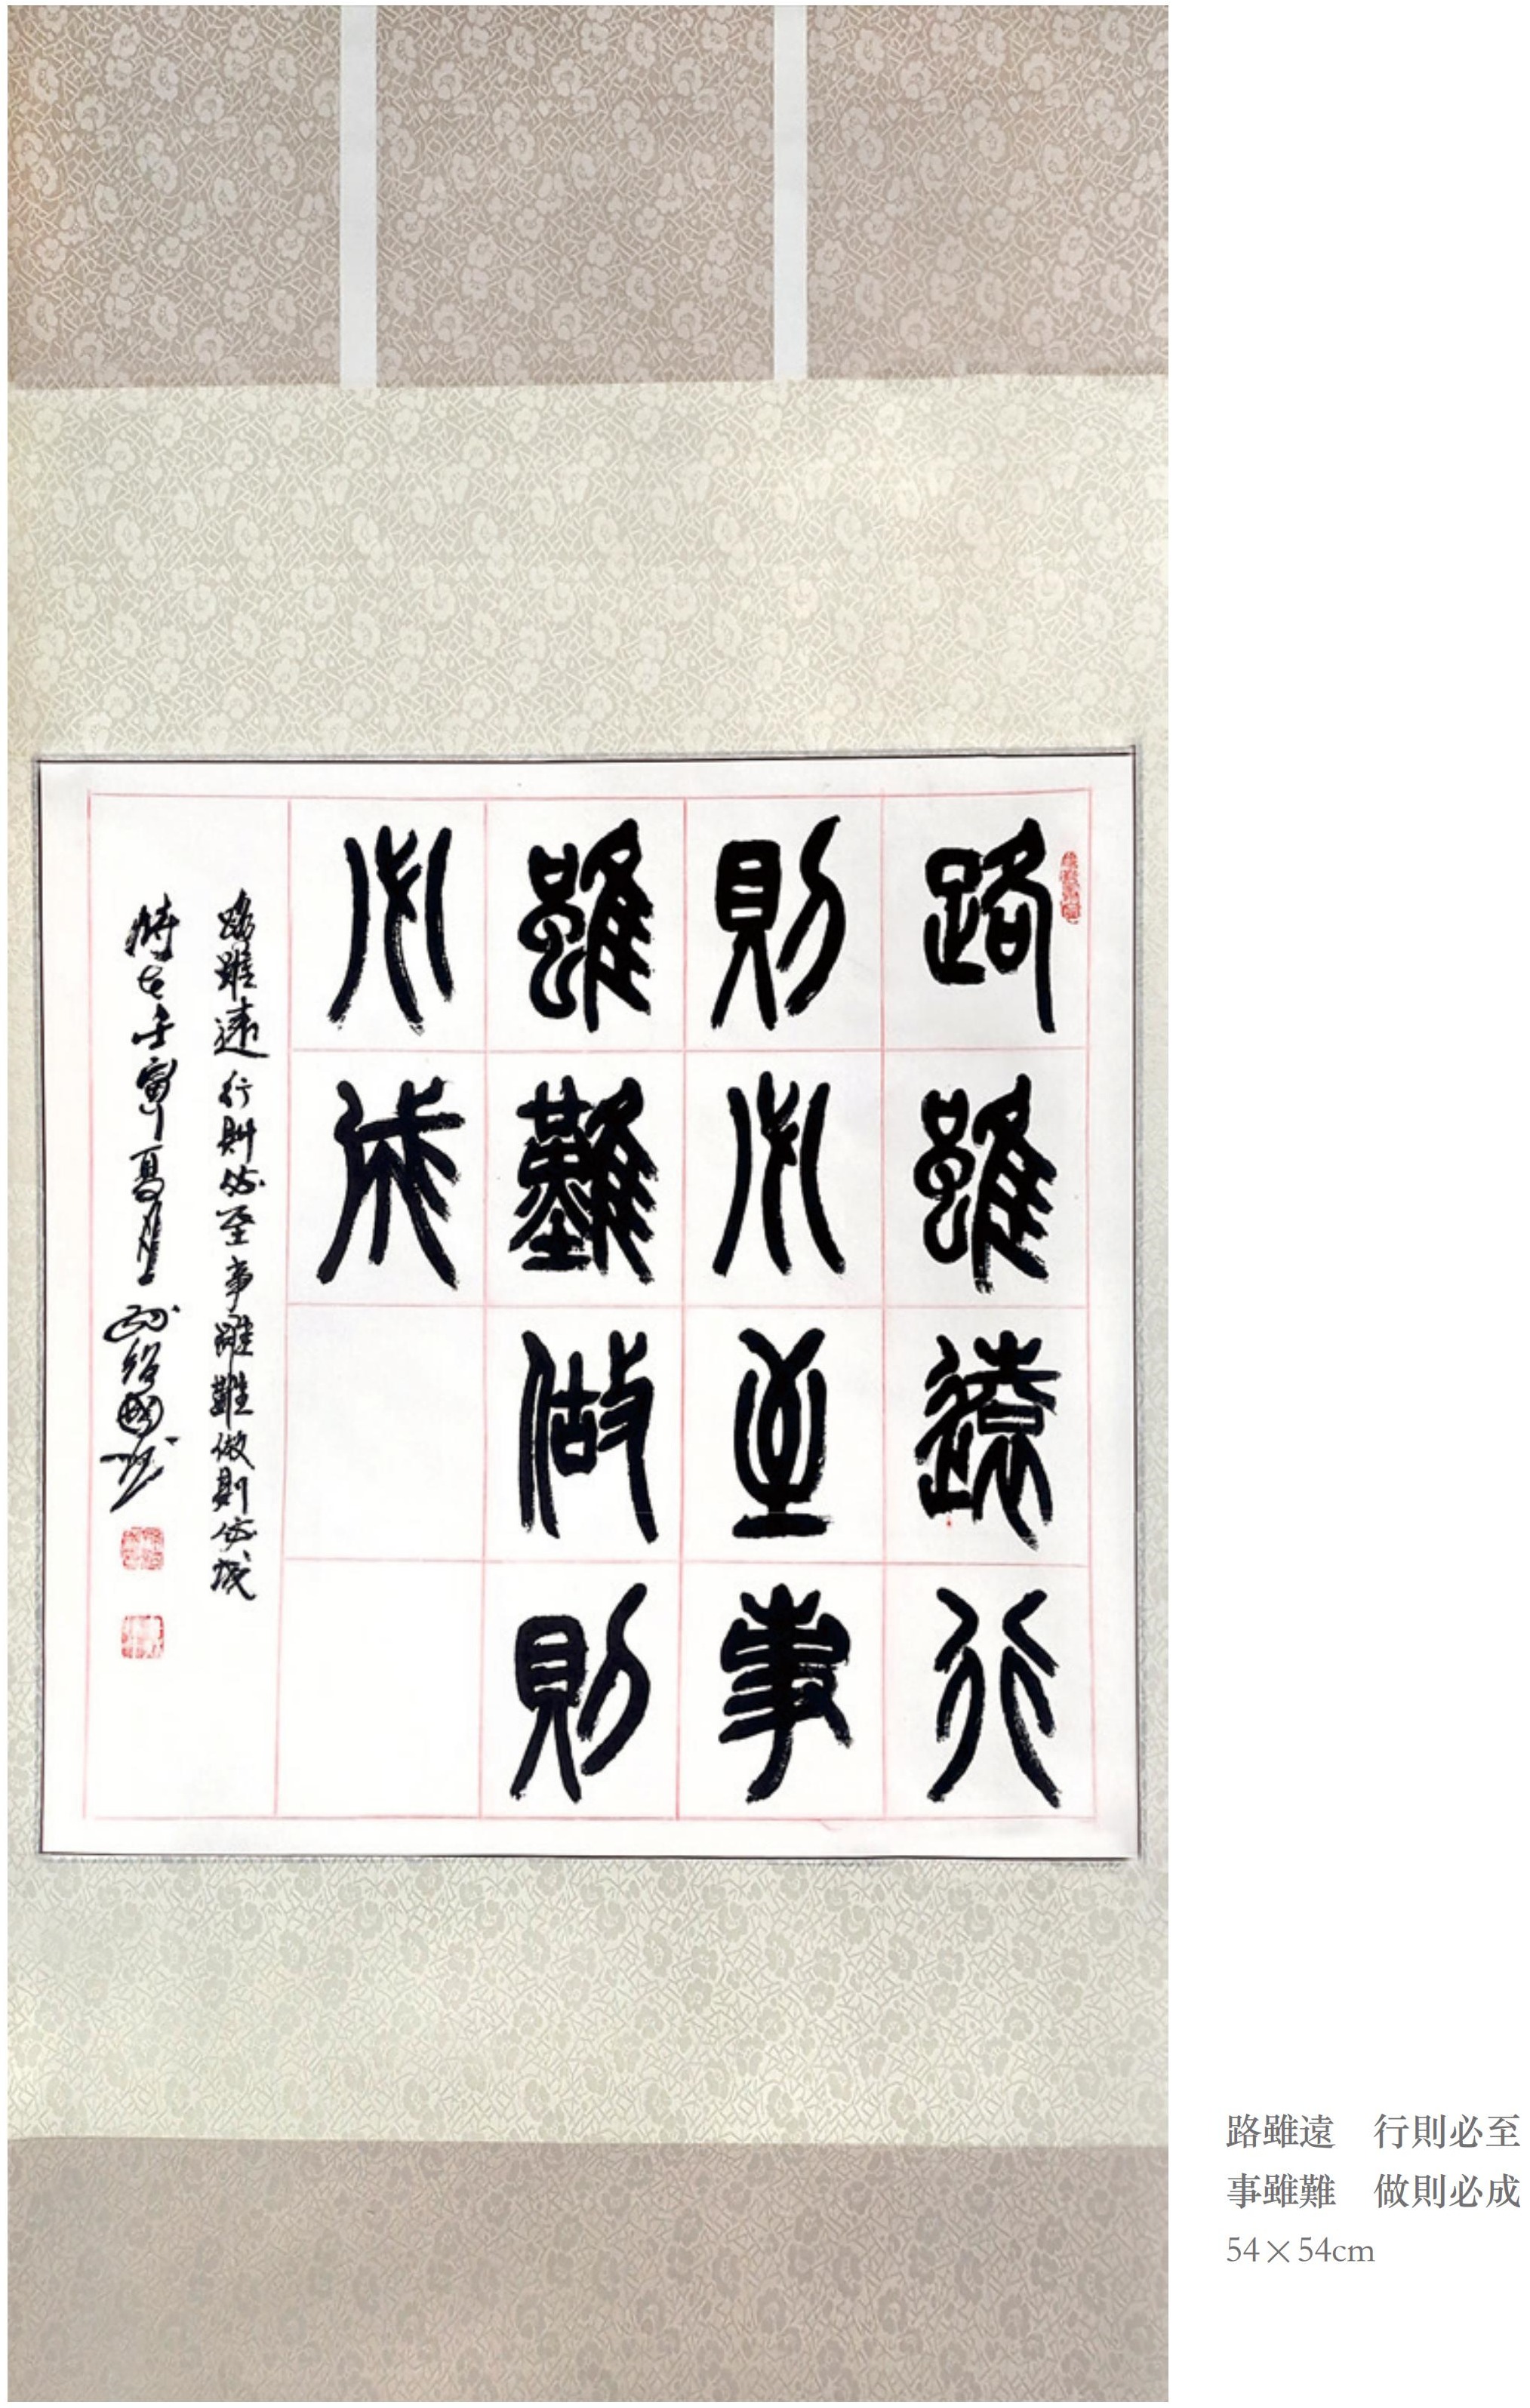 路雖遠行
則必至事
雖難做則
必成
路雖遠行則必至事雖難做則必成
時在壬寅夏月
路雖遠　行則必至
事雖難　做則必成
54×54cm